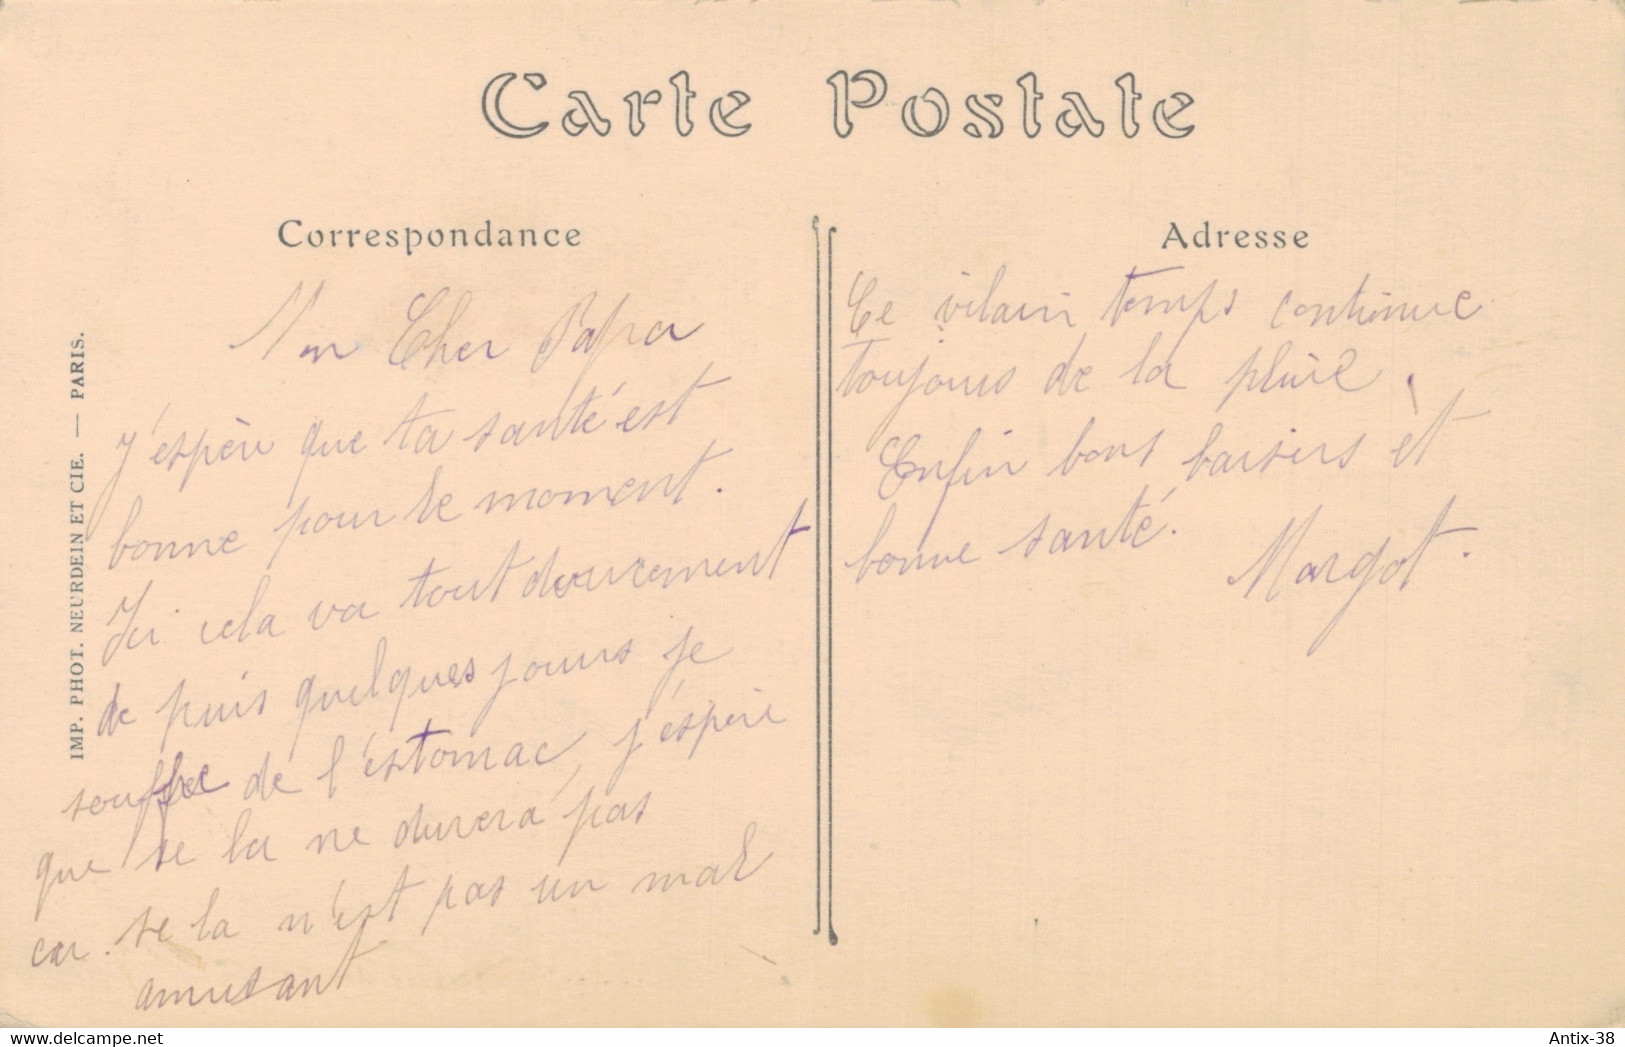 Carte Postale
Correspondance
Mon Cher Papa
J'espère que ta santé est
bonne pour le moment.
Ici cela va tout doucement
de puis quelques jours je
souffre de l'éstomac, j'éspère
que se la ne durera pas
car se la n'est pas un mal
amusant
Adresse
Ce vilain temps continue
toujours de la pluie.
Enfin bons baisers et
bonne santé.
Margot.
IMP. PHOT. NEURDEIN ET CIE. — PARIS.
Antix-38